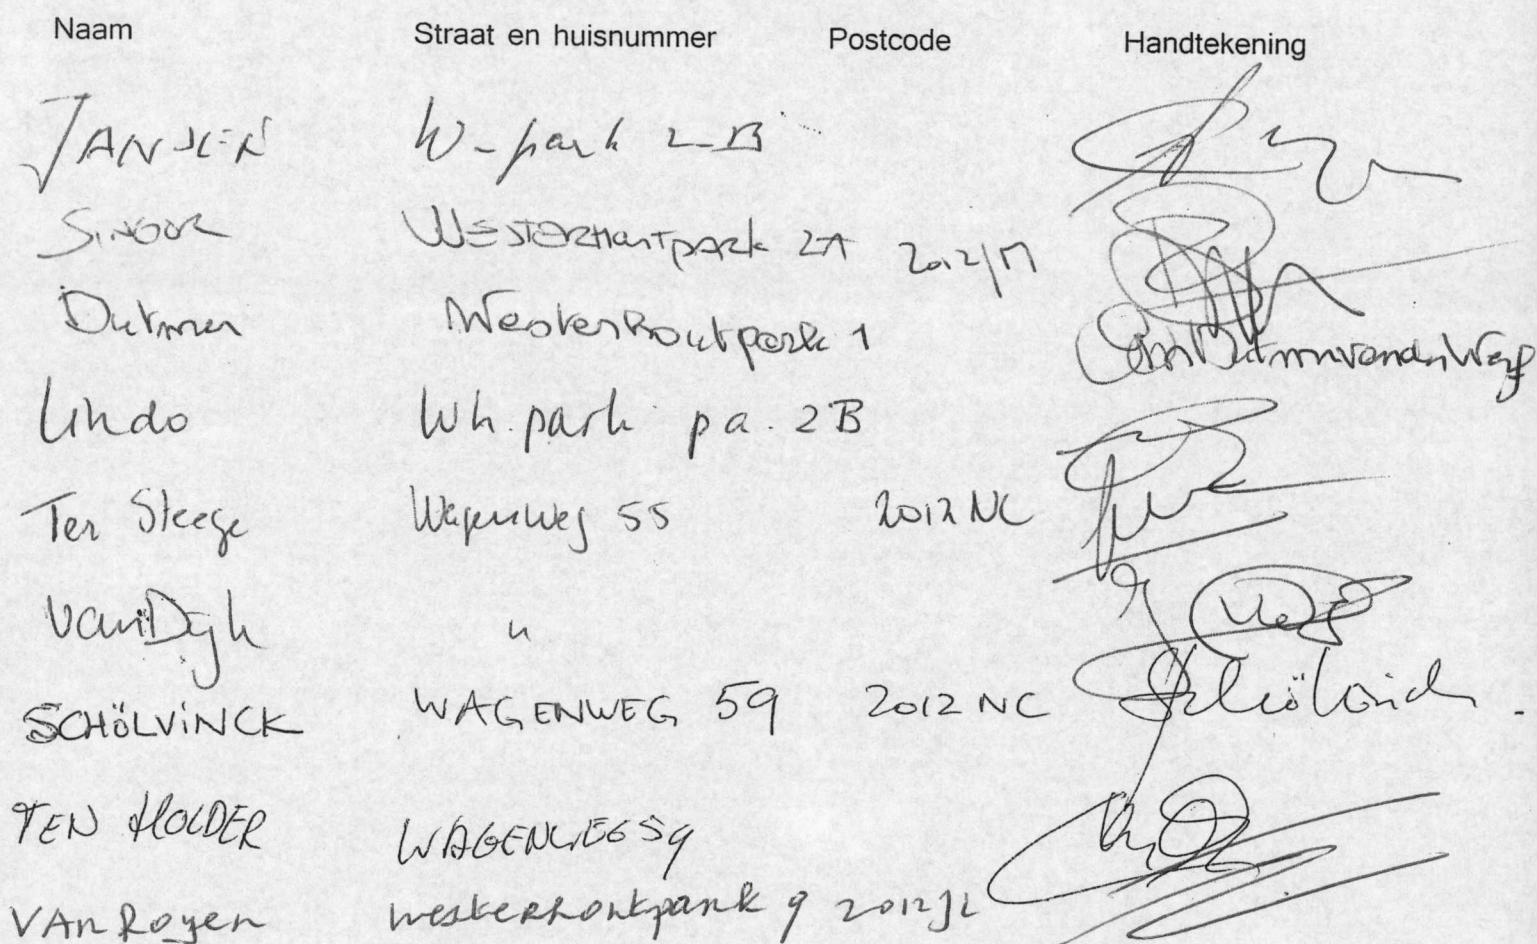 Naam Straat en huisnummer Postcode Handtekening
JANSEN W-park 2-B
WESTERHOUTPARK 2A 2012JM
Dutmer Westerhoutpark 1
Lindo Wh.park pa. 2B
Ter Steege Wagenweg 55 2012 NC
van Dyk "
SCHÖLVINCK WAGENWEG 59 2012 NC Schölvinck
TEN HOLDER WAGENWEG 59
VAN Royen Westerhoutpark 9 2012JL